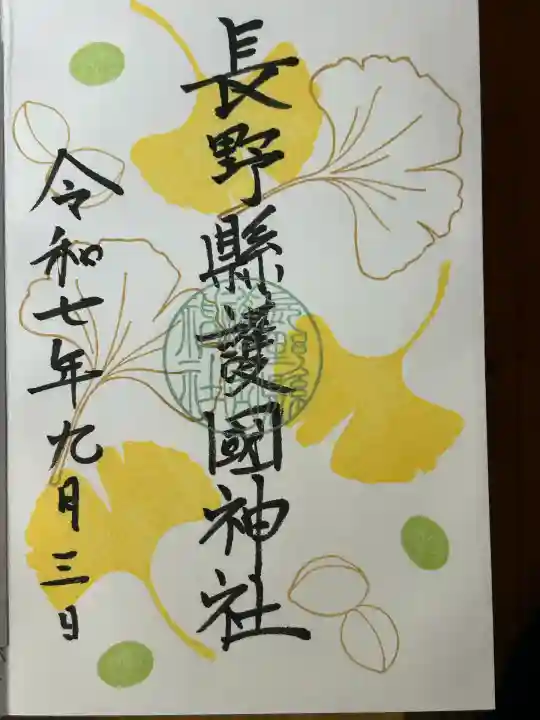 長野縣護國神社
令和七年九月三日